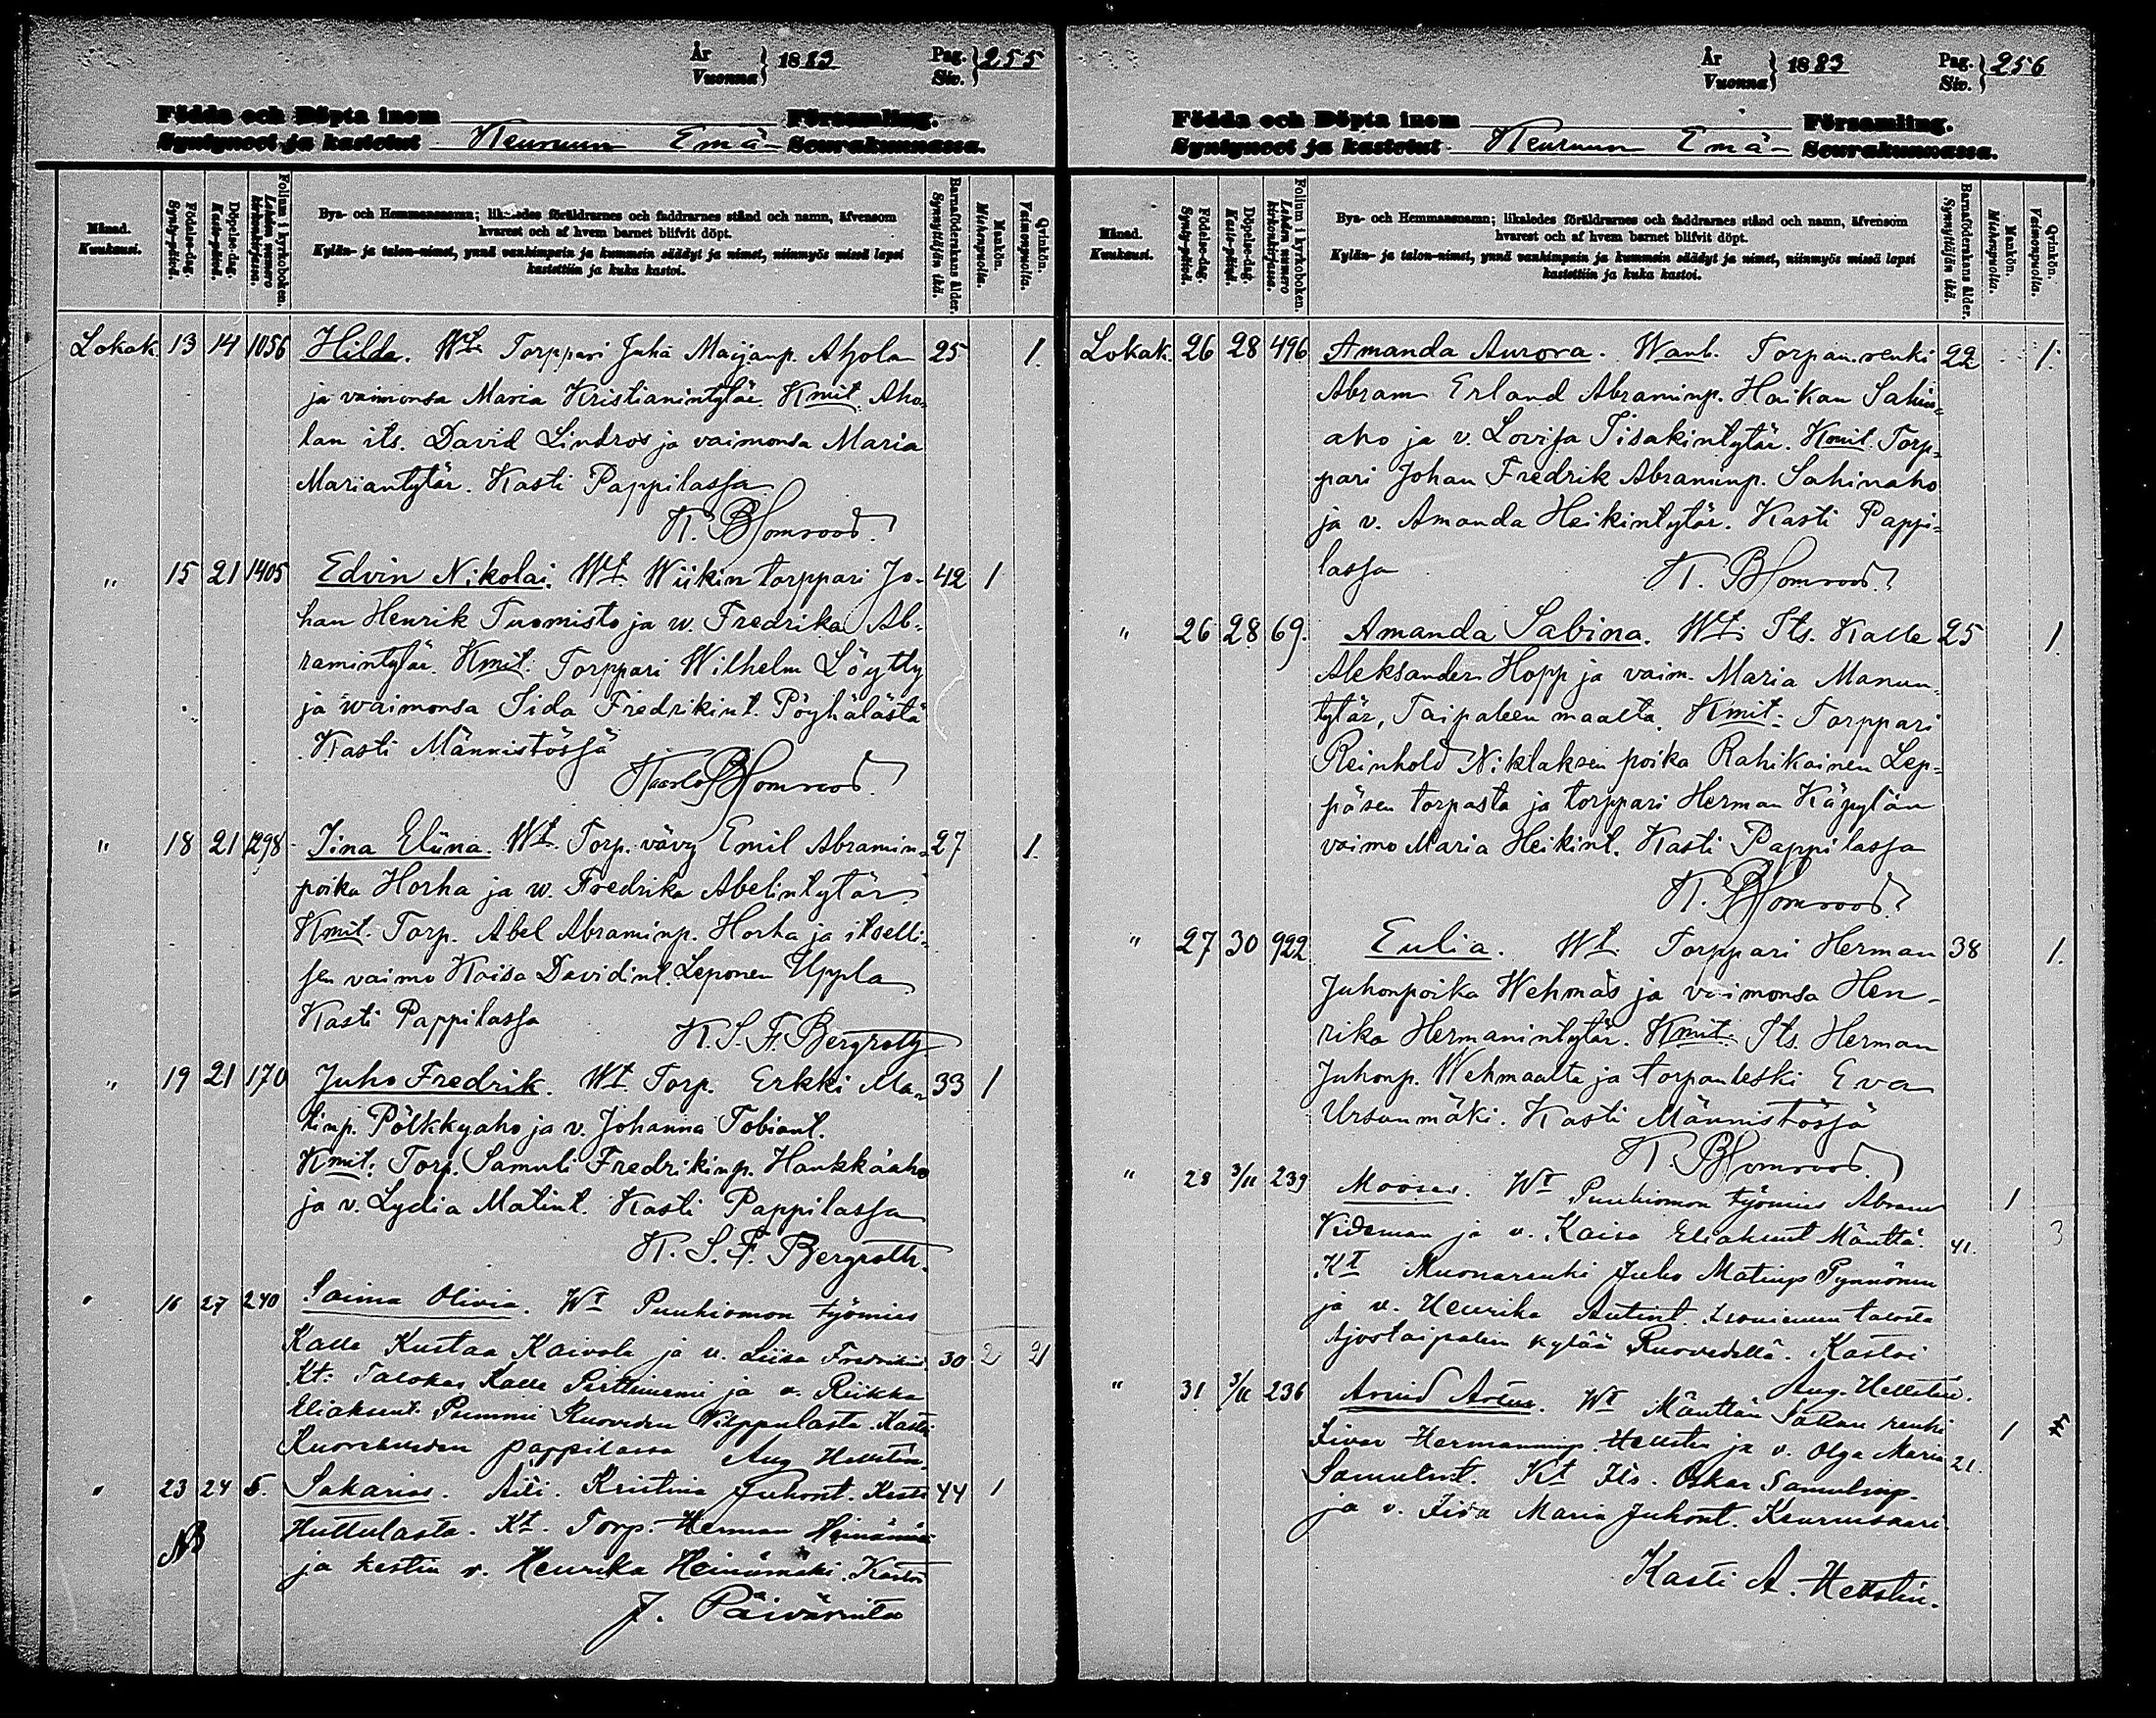 År
Vuonna } 1883 Pag. Siv. } 255
Födda och Döpta inom Församling.
Syntyneet ja kastetut Keuruun Emä- Seurakunnassa.
Månad. Kuukausi.
Födelse-dag. Synty-päivä.
Döpelse-dag. Kaste-päivä.
Folium i kyrkoboken. Lehden numero kirkonkirjassa.
Bya- och Hemmansnamn; likaledes föräldrarnes och faddrarnes stånd och namn, äfvensom
hvarest och af hvem barnet blifvit döpt.
Kylän- ja talon-nimet, ynnä vanhimpain ja kummein säädyt ja nimet, niinmyös missä lapsi
kastettiin ja kuka kastoi.
Barnaföderskans ålder. Synnyttäjän ikä.
Mankön. Miehenpuolia.
Qvinkön. Vaimonpuolia.
Lokak. 13 14 1056 Hilda. Wt. Torppari Juha Maijanp. Ahola 25 1.
ja vaimonsa Maria Kristianintytär. Kmit. Aho-
lan its. David Lindros ja vaimonsa Maria
Mariantytär. Kasti Pappilassa
K. Blomrood.
" 15 21 1405 Edvin Nikolai. Wt. Wiikin torppari Jo- 42 1
han Henrik Tuomisto ja w. Fredrika Ab-
ramintytär. Kmit. Torppari Wilhelm Löytty
ja waimonsa Iida Fredrikint. Pöyhälästä
Kasti Männistössä
Kaarlo Blomrood.
" 18 21 1298 Iina Eliina. Wt. Torp. vävy Emil Abramin- 27 1.
poika Horha ja w. Fredrika Abelintytär.
Kmit. Torp. Abel Abraminp. Horha ja itselli-
sen vaimo Kaisa Davidint. Leponen Uppla
Kasti Pappilassa
K. S. F. Bergroth
" 19 21 170 Juho Fredrik. Wt. Torp. Erkki Ma- 33 1
tinp. Pölkkyaho ja v. Johanna Tobiant.
Kmit. Torp. Samuli Fredrikinp. Haukkaaho
ja v. Lydia Matint. Kasti Pappilassa
K. S. F. Bergroth.
" 16 27 240 Saima Olivia. Wt Puuhiomon työmies
Kalle Kustaa Kaivola ja v. Liisa Fredrikint 30 2 21
Kt: Talokas Kalle Perttiniemi ja v. Riikka
Eliaksent. Ruoveden Wilppulasta. Kasti
Ruoveden pappilassa Aug Hellstén.
" 23 24 5. Sakarias. Äiti. Kristina Juhont. 44 1
Huttulasta. Kt. Torp. Herman Heinämäki
ja kestin v. Henrika Heinämäki. Kastoi
NB
J. Päivärinta
År
Vuonna } 1883 Pag. Siv. } 256
Födda och Döpta inom Församling.
Syntyneet ja kastetut Keuruun Emä- Seurakunnassa.
Månad. Kuukausi.
Födelse-dag. Synty-päivä.
Döpelse-dag. Kaste-päivä.
Folium i kyrkoboken. Lehden numero kirkonkirjassa.
Bya- och Hemmansnamn; likaledes föräldrarnes och faddrarnes stånd och namn, äfvensom
hvarest och af hvem barnet blifvit döpt.
Kylän- ja talon-nimet, ynnä vanhimpain ja kummein säädyt ja nimet, niinmyös missä lapsi
kastettiin ja kuka kastoi.
Barnaföderskans ålder. Synnyttäjän ikä.
Mankön. Miehenpuolia.
Qvinkön. Vaimonpuolia.
Lokak. 26 28 496 Amanda Aurora. Wanh. Torpan renki 22 1.
Abram Erland Abraminp. Haikan Sahin-
aho ja v. Lovisa Iisakintytär. Kmit. Torp-
pari Johan Fredrik Abraminp. Sahinaho
ja v. Amanda Heikintytär. Kasti Pappi-
lassa K. Blomrood.
" 26 28 69. Amanda Sabina. Wt. Its. Kalle 25 1
Aleksander Hopp ja vaim. Maria Manun-
tytär, Taipaleen maalta. Kmit. Torppari
Reinhold Niklaksen poika Rahikainen Lep-
päsen torpasta ja torppari Herman Käpylän
vaimo Maria Heikint. Kasti Pappilassa
K. Blomrood.
" 27 30 922 Eulia. Wt. Torppari Herman 38 1.
Juhonpoika Wehmas ja vaimonsa Hen-
rika Hermanintytär. Kmit. Its. Herman
Juhonp. Wehmaalta ja torpanleski Eva
Ursunmäki. Kasti Männistössä
K. Blomrood.
" 28 3/11 239 Mooses. Wt Puuhiomon työmies Abram 1
Videman ja v. Kaisa Eliaksent Mänttä. 41. 3
Kt Muonarenki Juho Matinp Pynnönen
ja v. Henrika Antint. talosta
Ajostaipaleen kylää Ruovedellä. Kastoi
Aug. Hellstén.
" 31. 3/11 236 Arvid Artur. Wt Mänttän Sahan renki 1
Iivar Hermanninp. ja v. Olga Maria 21.
Samulint. Kt Its. Oskar Samulinp.
ja v. Iida Maria Juhont. Keuruusaari.
Kasti A. Hellstén.